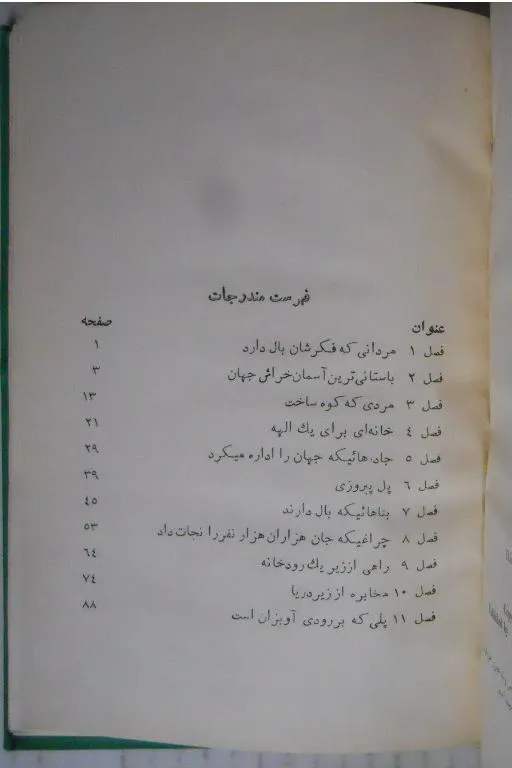 فهرست مندرجات
عنوان صفحه
فصل ۱ مردانی که فکرشان بال دارد ۱
فصل ۲ باستانی‌ترین آسمان‌خراش جهان ۳
فصل ۳ مردی که کوه ساخت ۱۳
فصل ٤ خانه‌ای برای یك الهه ۲۱
فصل ۵ جاده‌هائیکه جهان را اداره میکرد ۲۹
فصل ٦ پل پیروزی ۳۹
فصل ۷ بناهائیکه بال دارند ٤۵
فصل ۸ چراغیکه جان هزاران هزار نفر را نجات داد ۵۳
فصل ۹ راهی از زیر یك رودخانه ٦٤
فصل ۱۰ مخابره از زیر دریا ۷٤
فصل ۱۱ پلی که بر رودی آویزان است ۸۸